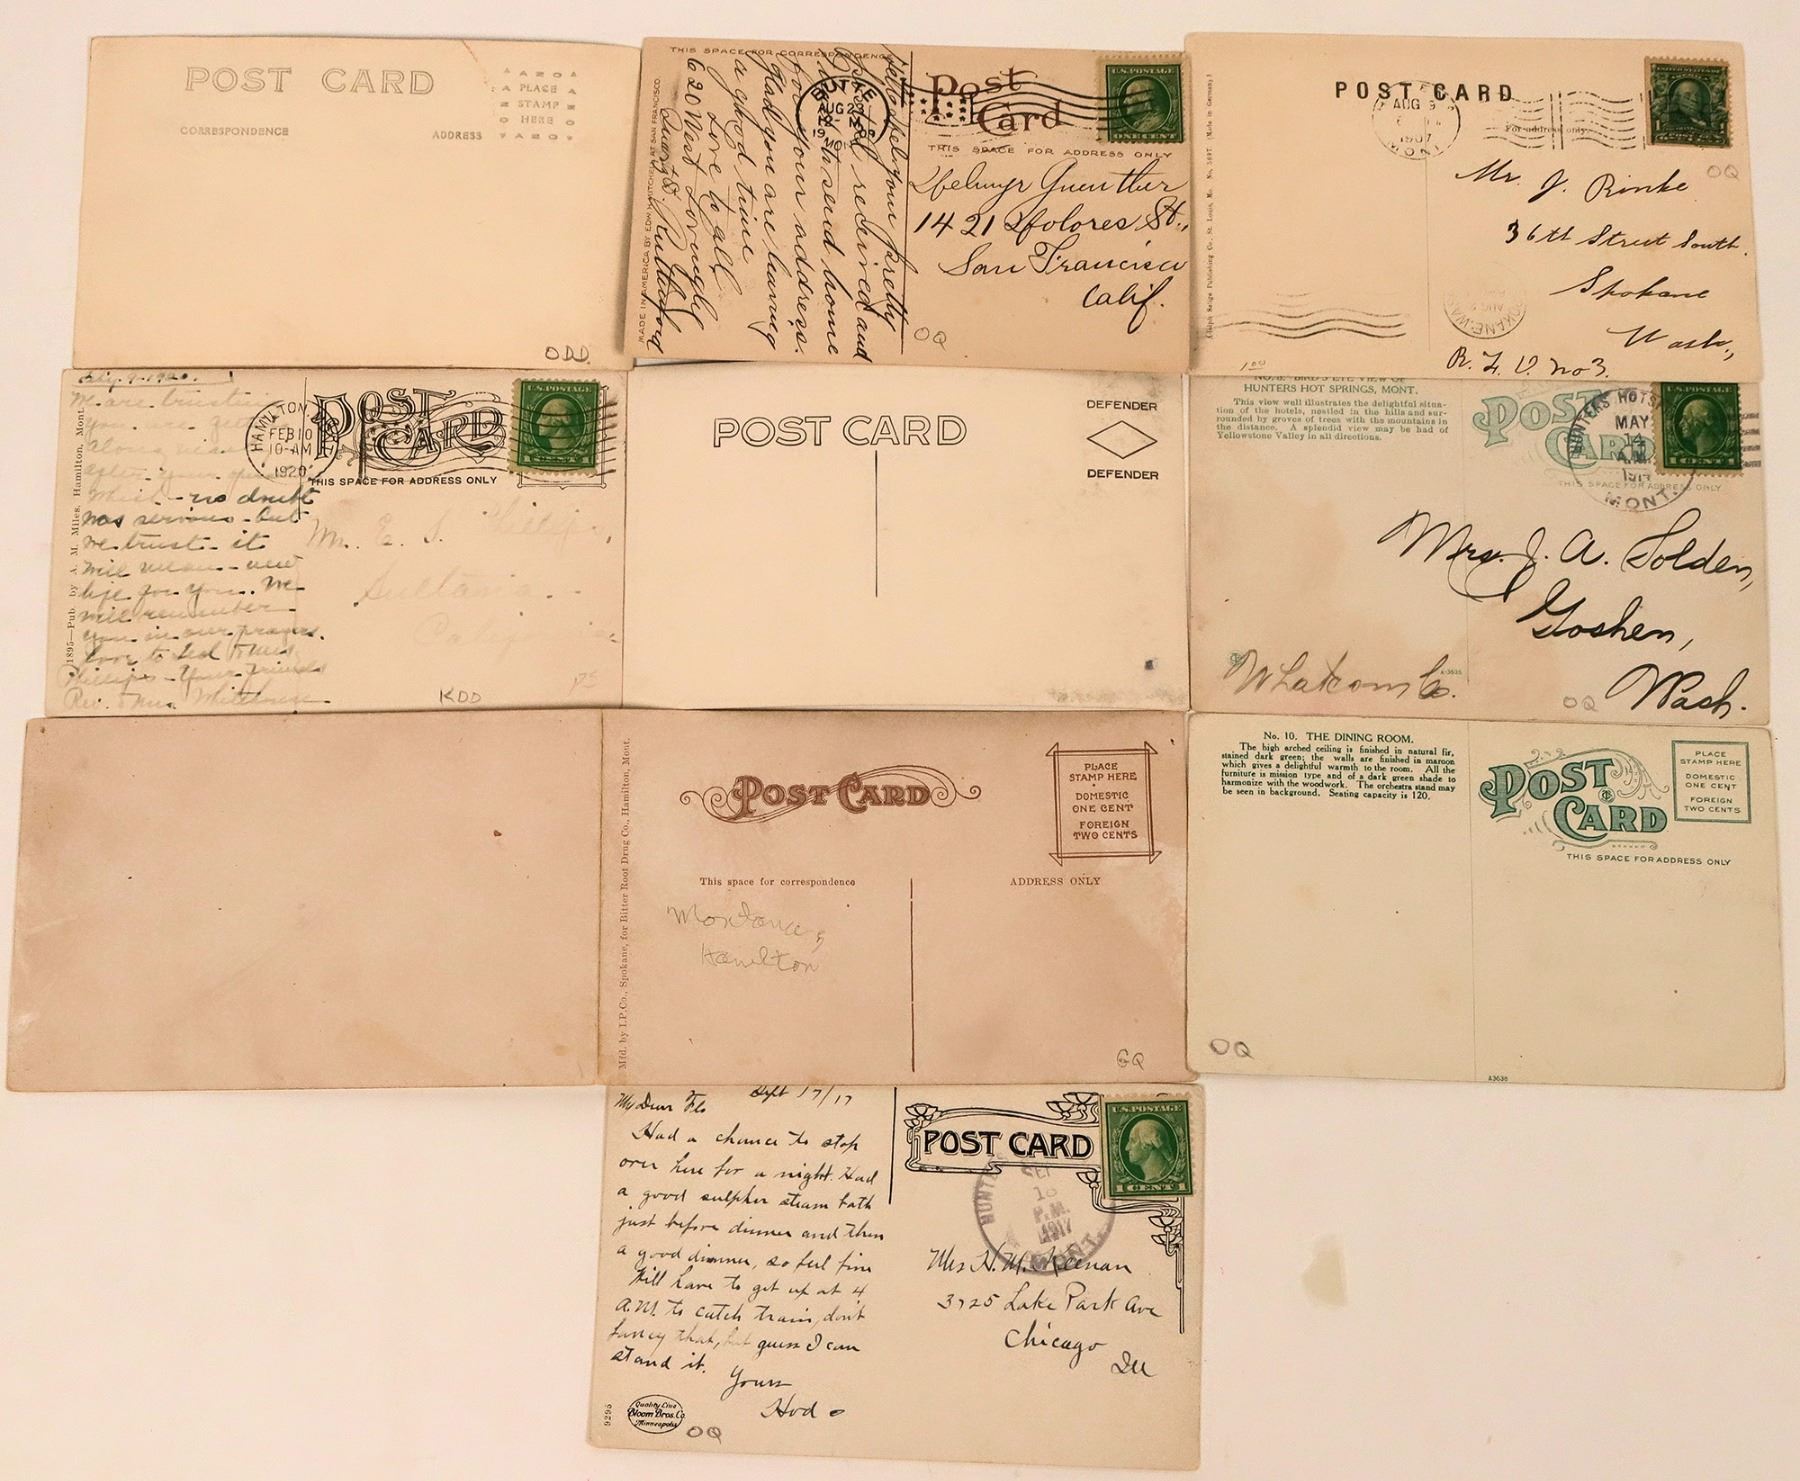 POST CARD
CORRESPONDENCE
ADDRESS
PLACE
STAMP
HERE
ODD
THIS SPACE FOR CORRESPONDENCE
Post
Card
THIS SPACE FOR ADDRESS ONLY
U.S. POSTAGE
ONE CENT
Guenther
1421 Dolores St.,
San Francisco
Calif.
Hello
your pretty
Postal received and
to send home
for your address.
Glad you are having
a good time
Love to all
620 West
Quartz St.
Rutherford
MADE IN AMERICA BY EDW. H. MITCHELL AT SAN FRANCISCO.
OQ
POST CARD
For address only.
AUG
1907
MONT
Mr. J. Rinke
36th Street South.
Spokane
Wash.,
R. F. D. No 3.
SPOKANE, WASH.
Adolph Selige Publishing Co., St. Louis, Mo. No. 5697. (Made in Germany.)
1.00
OQ
Feby. 9-1920.
We are trusting
you are
along
after your
which - no doubt
was serious - but
we trust - it
will mean - new
life for you. We
will remember
you in our prayers.
love to
Phillips - Your friends
Rev. & Mrs.
1895—Pub. by A. M. Miles, Hamilton, Mont.
HAMILTON,
FEB 10
10-AM
1920
POST
CARD
THIS SPACE FOR ADDRESS ONLY
U.S. POSTAGE
E. S.
Sultana
Calif
KDD
POST CARD
DEFENDER
DEFENDER
No. 8. BIRD'S EYE VIEW OF
HUNTERS HOT SPRINGS, MONT.
This view well illustrates the delightful situa-
tion of the hotels, nestled in the hills and sur-
rounded by groves of trees with the mountains in
the distance. A splendid view may be had of
Yellowstone Valley in all directions.
POST
CARD
THIS SPACE FOR ADDRESS ONLY
HUNTERS HOT
MAY
14
A.M.
MONT.
1 CENT
Mrs. J. A. Solden,
Goshen,
Wash.
Whatcom Co.
OQ
POST CARD
PLACE
STAMP HERE
DOMESTIC
ONE CENT
FOREIGN
TWO CENTS
This space for correspondence
ADDRESS ONLY
Montana,
Hamilton
Mfd. by I.P.Co., Spokane, for Bitter Root Drug Co., Hamilton, Mont.
GQ
No. 10. THE DINING ROOM.
The high arched ceiling is finished in natural fir,
stained dark green; the walls are finished in maroon
which gives a delightful warmth to the room. All the
furniture is mission type and of a dark green shade to
harmonize with the woodwork. The orchestra stand may
be seen in background. Seating capacity is 120.
POST
CARD
THIS SPACE FOR ADDRESS ONLY
PLACE
STAMP HERE
DOMESTIC
ONE CENT
FOREIGN
TWO CENTS
OQ
A3636
Sept 17/17
My Dear Flo
Had a chance to stop
over here for a night. Had
a good sulpher steam bath
just before dinner and then
a good dinner, so feel fine
Will have to get up at 4
A.M. to catch train, don't
fancy that, but guess I can
stand it.
Yours
Hod
POST CARD
U.S. POSTAGE
1 CENT 1
HUNTE
18
P.M.
1917
MONT.
Mrs H. M. Keenan
3725 Lake Park Ave
Chicago
Ill
9295
Quality Line
Bloom Bros. Co.
Minneapolis
OQ